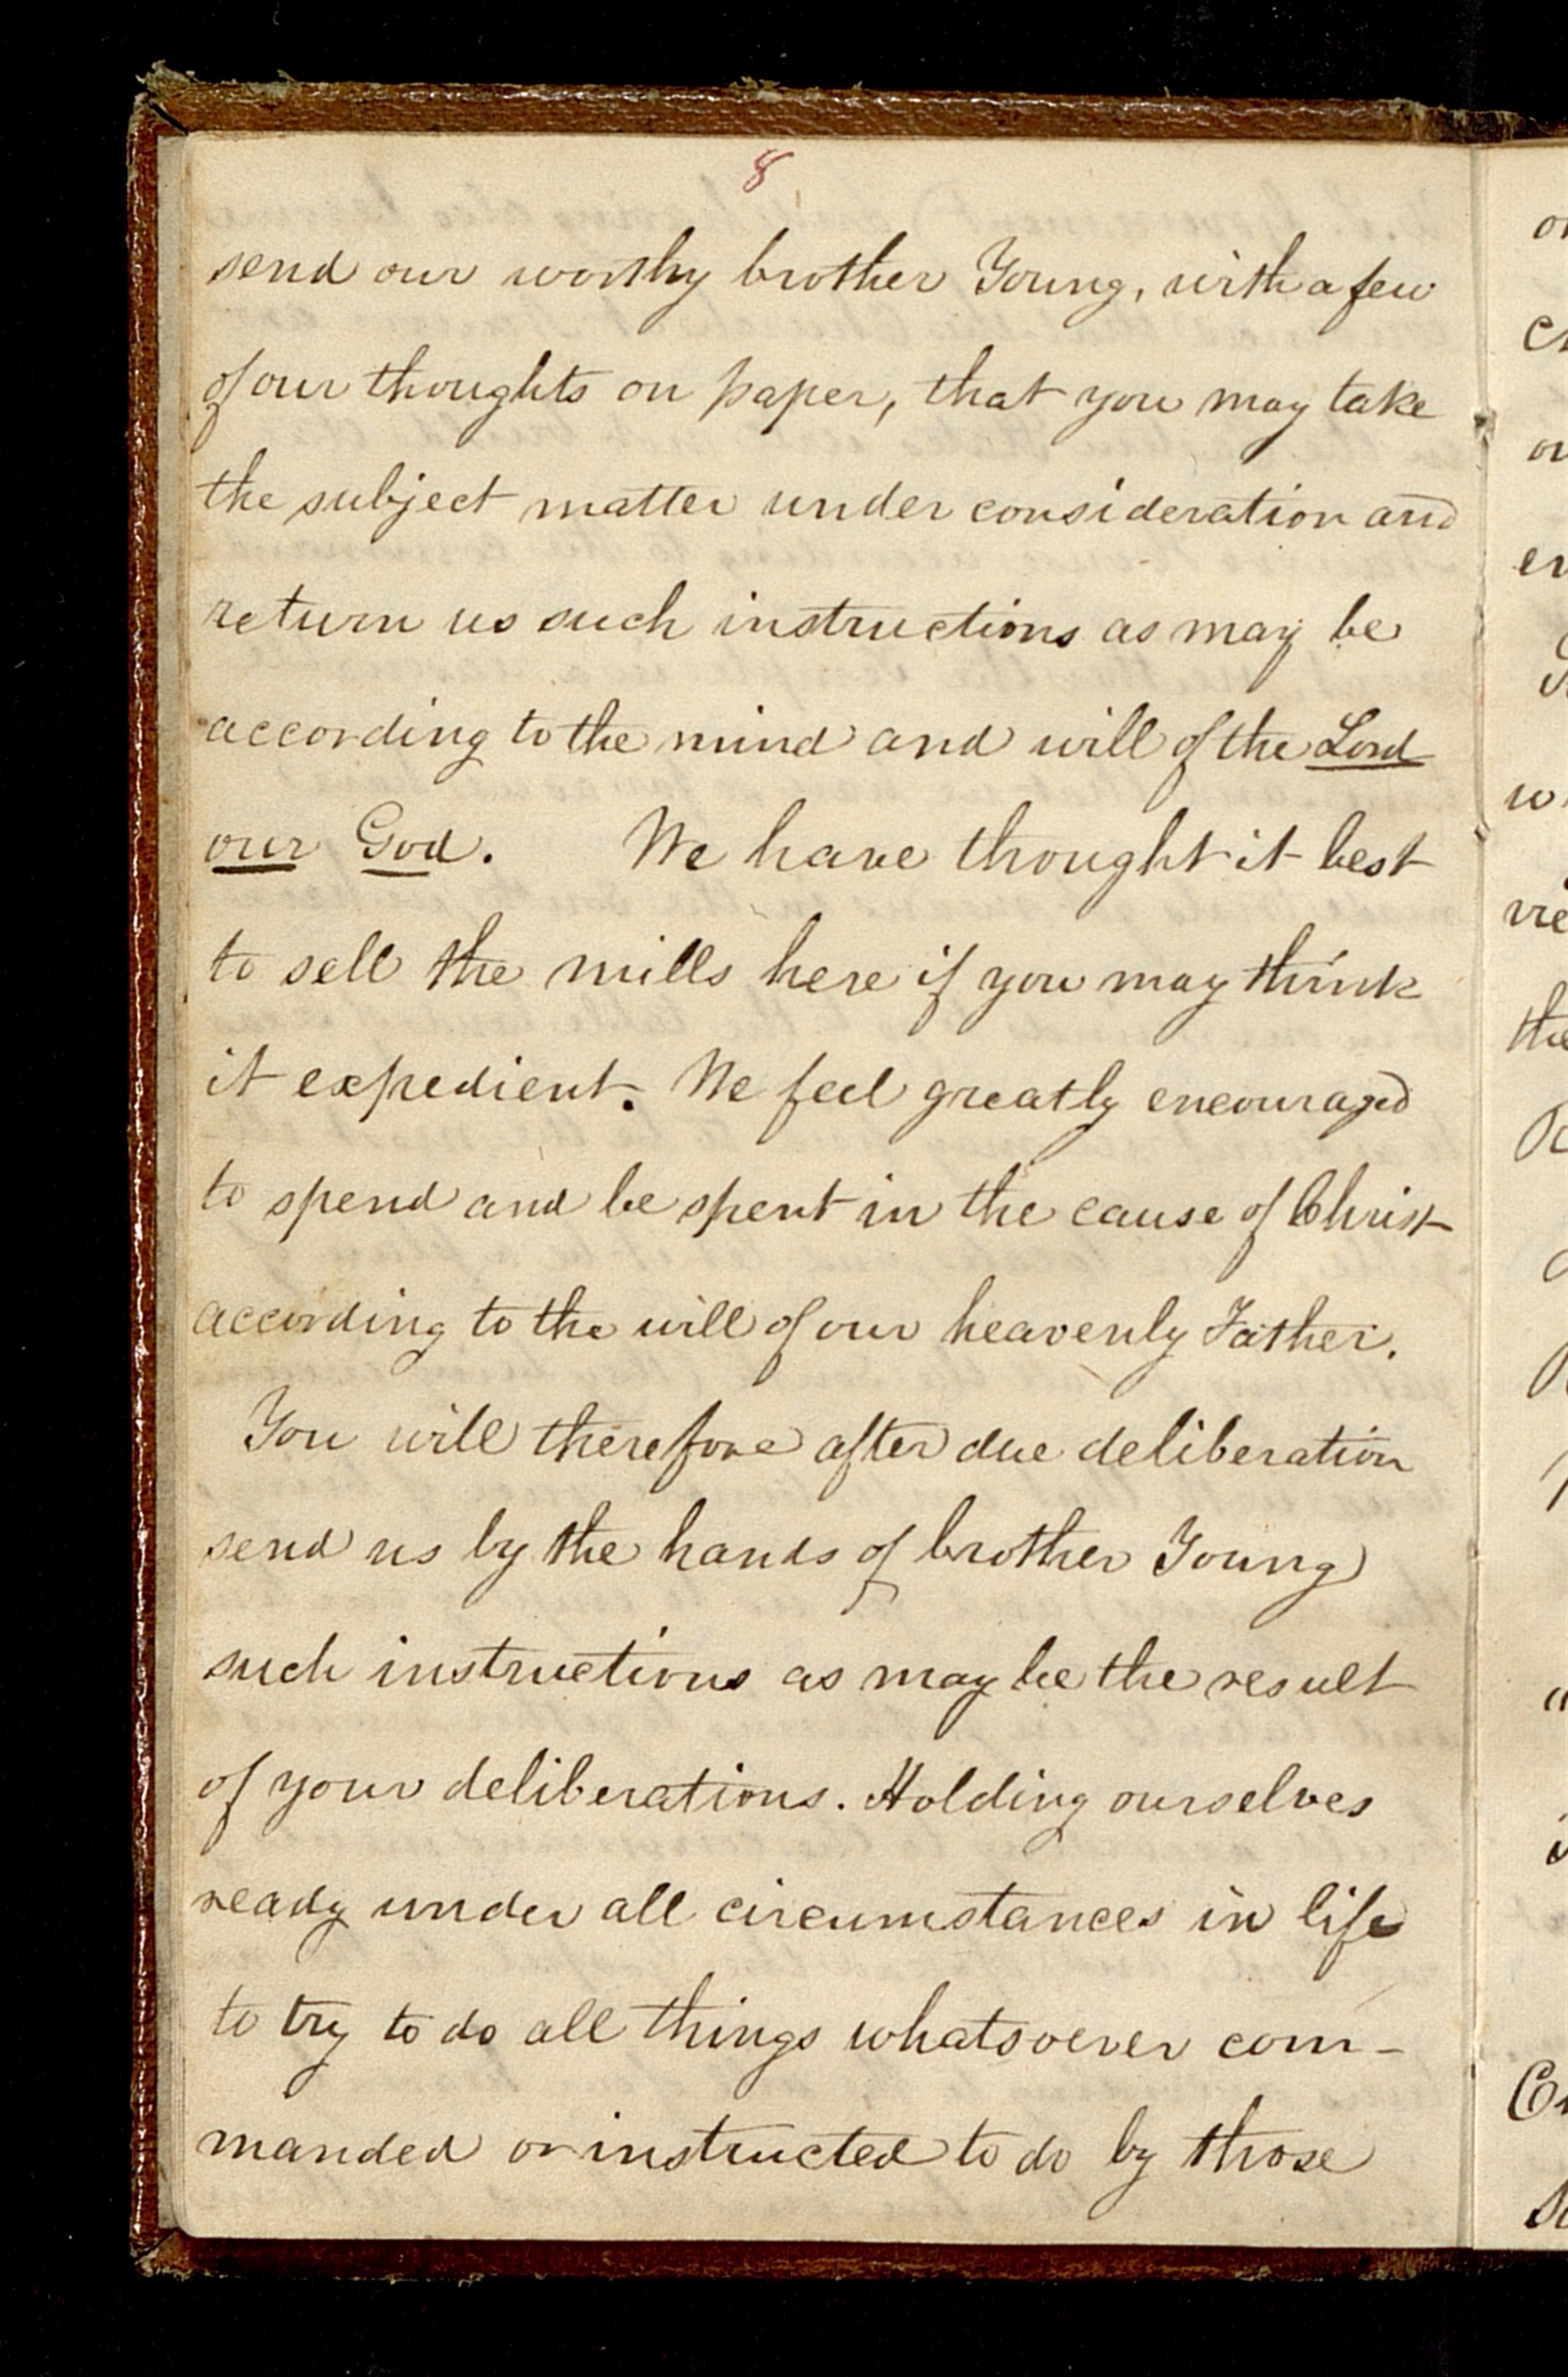 8
send our worthy brother Young, with a few
of our thoughts on paper, that you may take
the subject matter under consideration and
return us such instructions as may be
according to the mind and will of the Lord
our God. We have thought it best
to sell the mills here if you may think
it expedient. We feel greatly encouraged
to spend and be spent in the cause of Christ
according to the will of our heavenly Father.
You will therefore after due deliberation
send us by the hands of brother Young
such instructions as may be the result
of your deliberations. Holding ourselves
ready under all circumstances in life
to try to do all things whatsoever com-
manded or instructed to do by those